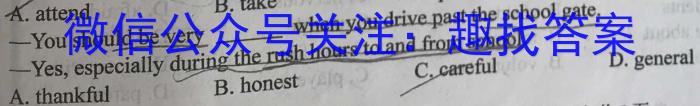 A. attend B. take
—You should be very when you drive past the school gate.
微信公众号关注：趣找答案
—Yes, especially during the rush hours to and from school.
A. thankful B. honest C. careful D. general